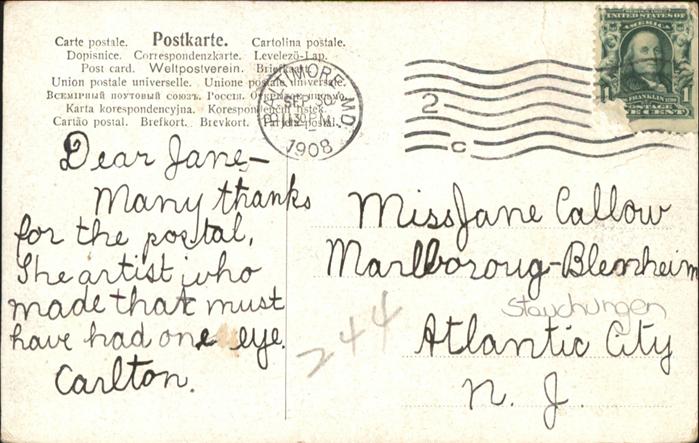 Carte postale. Postkarte. Cartolina postale.
Dopisnice. Correspondenzkarte. Levelező-Lap.
Post card. Weltpostverein. Briefkaart.
Union postale universelle. Unione postale universale.
Всемірный почтовый союзъ. Россія. Открытое письмо.
Karta korespondencyjna. Korespondenční lístek.
Cartão postal. Brefkort. Brevkort. Tarjeta postal.
BALTIMORE, MD.
SEP 10
1130 PM
1908
2
C
UNITED STATES OF
AMERICA
FRANKLIN
POSTAGE
1
ONE CENT
Dear Jane-
Many thanks
for the postal,
The artist who
made that must
have had one eye.
Carlton.
Miss Jane Callow
Marlboroug-Blenheim
Stauchungen
Atlantic City
N. J.
244